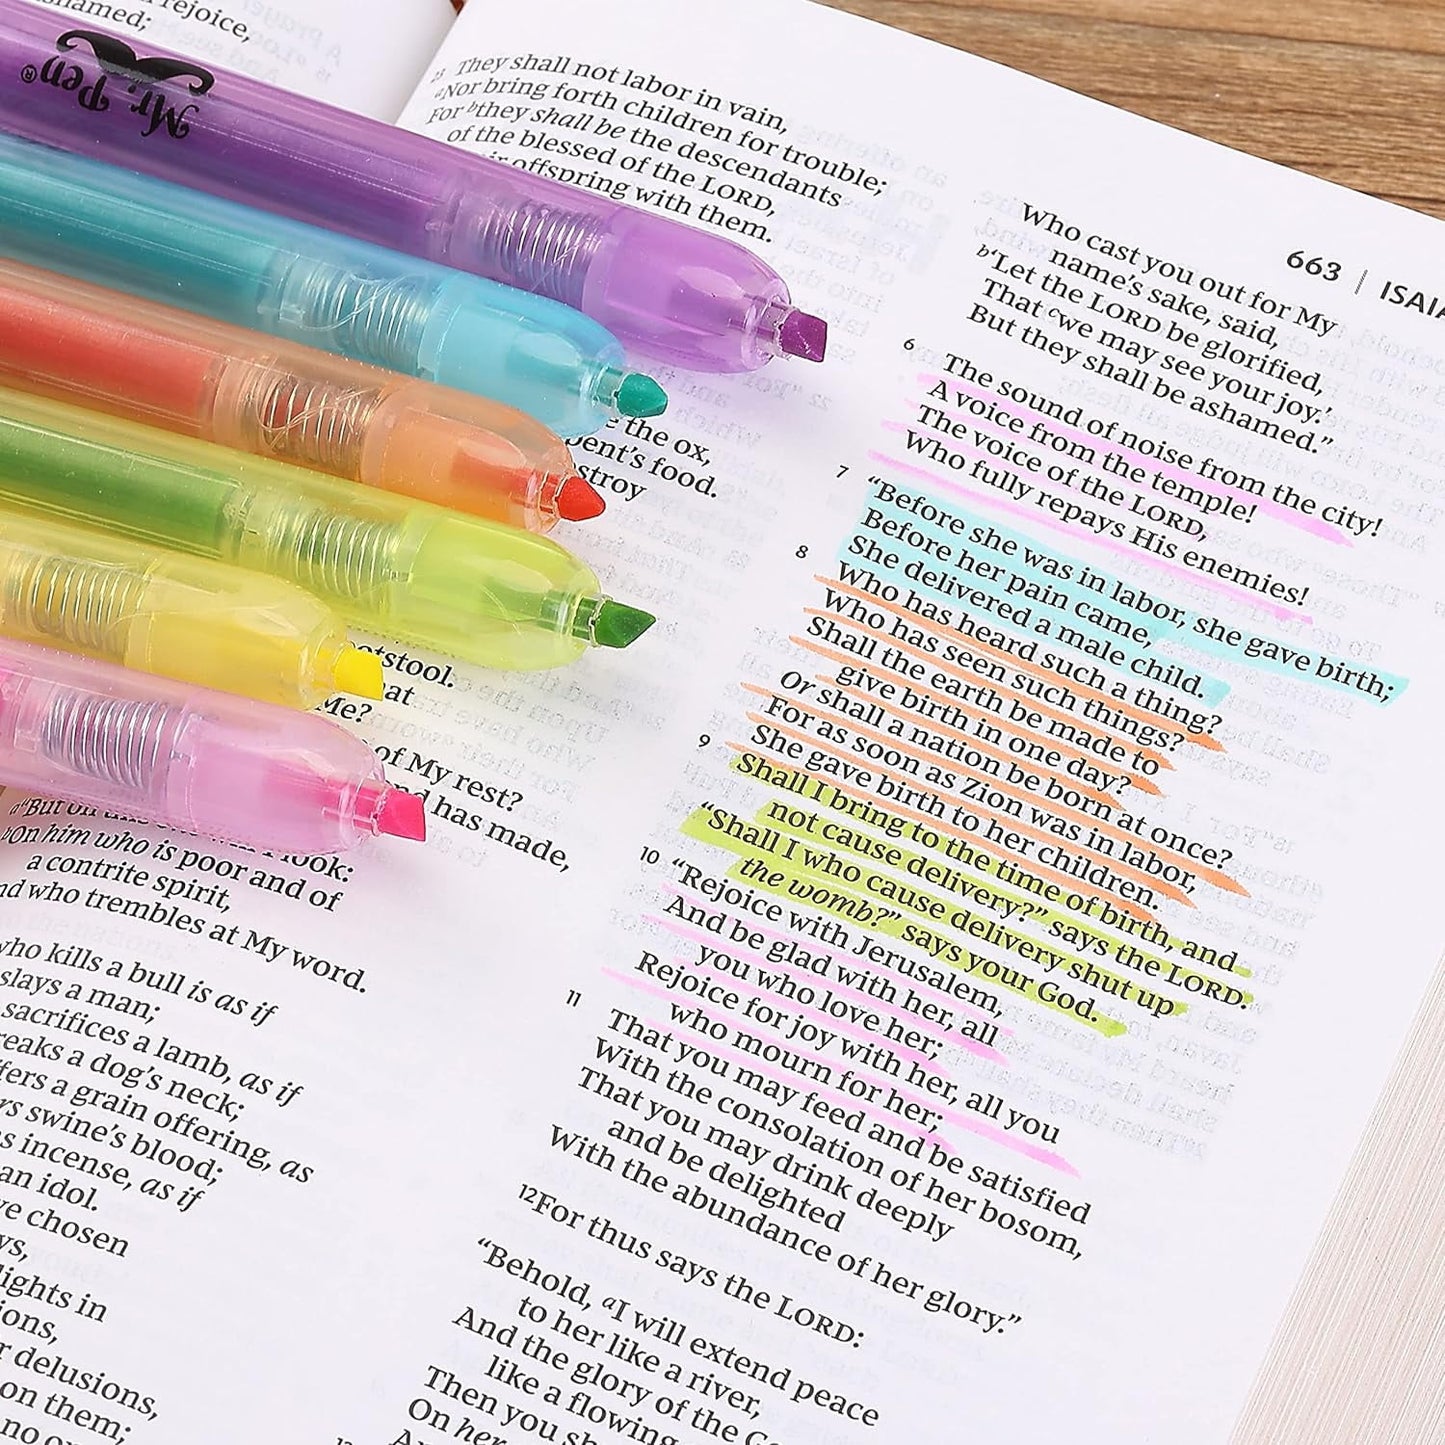 rejoice,
ashamed;
Mr. Pen®
23 They shall not labor in vain,
aNor bring forth children for trouble;
For bthey shall be the descendants
of the blessed of the LORD,
offspring with them.
the ox,
food.
otstool.
Me?
of My rest?
has made,
a"But on
look:
bOn him who is poor and of
a contrite spirit,
who trembles at My word.
who kills a bull is as if
slays a man;
sacrifices a lamb, as if
breaks a dog's neck;
offers a grain offering, as
swine's blood;
incense, as if
an idol.
chosen
in
delusions,
on them;
no
663 | ISAIA
Who cast you out for My
name's sake, said,
b'Let the LORD be glorified,
That cwe may see your joy.'
But they shall be ashamed."
6 The sound of noise from the city!
A voice from the temple!
The voice of the LORD,
Who fully repays His enemies!
7 "Before she was in labor, she gave birth;
Before her pain came,
She delivered a male child.
8 Who has heard such a thing?
Who has seen such things?
Shall the earth be made to
give birth in one day?
Or shall a nation be born at once?
For as soon as Zion was in labor,
She gave birth to her children.
9 Shall I bring to the time of birth, and
not cause delivery?" says the LORD.
"Shall I who cause delivery shut up
the womb?" says your God.
10 "Rejoice with Jerusalem,
And be glad with her, all
you who love her;
Rejoice for joy with her, all you
who mourn for her;
11 That you may feed and be satisfied
With the consolation of her bosom,
That you may drink deeply
and be delighted
With the abundance of her glory."
12For thus says the LORD:
"Behold, aI will extend peace
to her like a river,
And the glory of the
like a flowing
Then you
On her